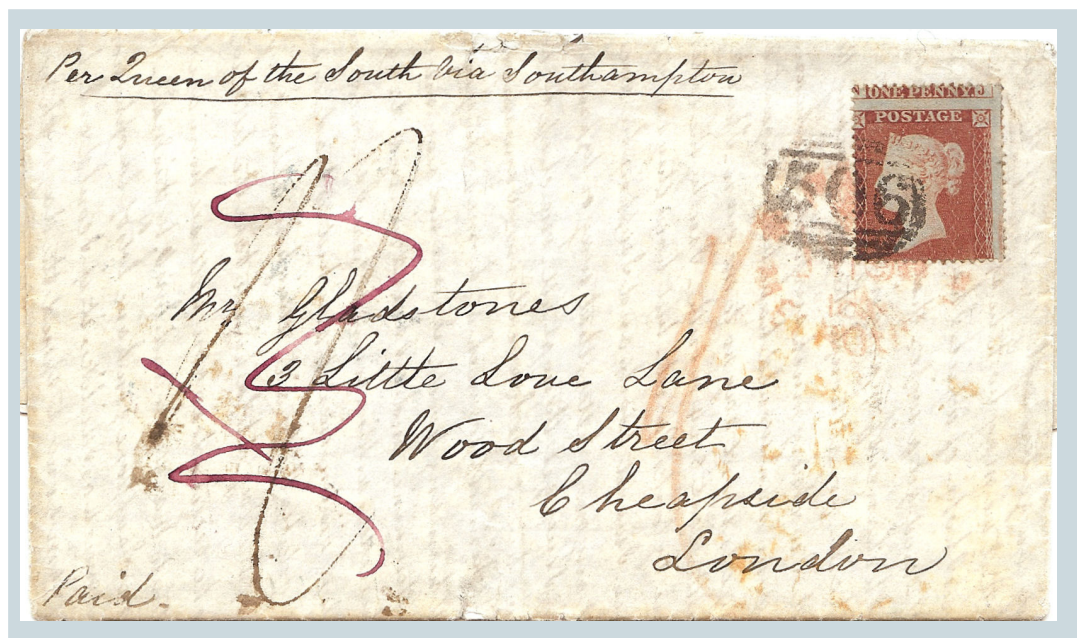 Per Queen of the South Via Southampton
ONE PENNY
POSTAGE
506
Mr Gladstones
3 Little Love Lane
Wood Street
Cheapside
London
Paid